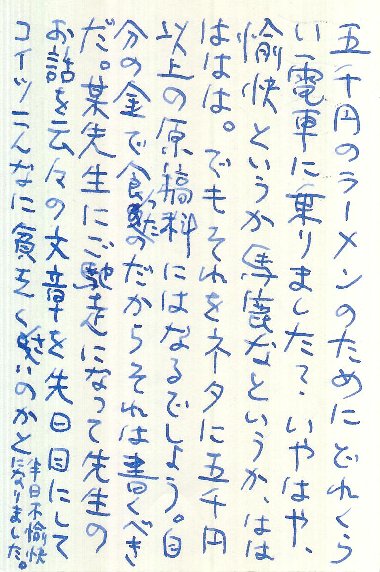 五千円のラーメンのためにどれくら
い電車に乗りましたて、いやはや、
愉快というか馬鹿なというか、はは
ははは。でもそれをネタに五千円
以上の原稿料にはなるでしょう。自
分の金で食ったのだからそれは書くべき
だ。某先生にご馳走になって先生の
お話を云々の文章を先日目にして
コイツこんなに貧乏くさいのかと
半日不愉快
になりました。